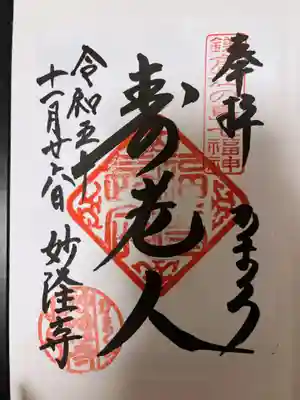 鎌倉江の島七福神
奉拝
かまくら
寿老人
令和五年
十一月廿六日
妙隆寺